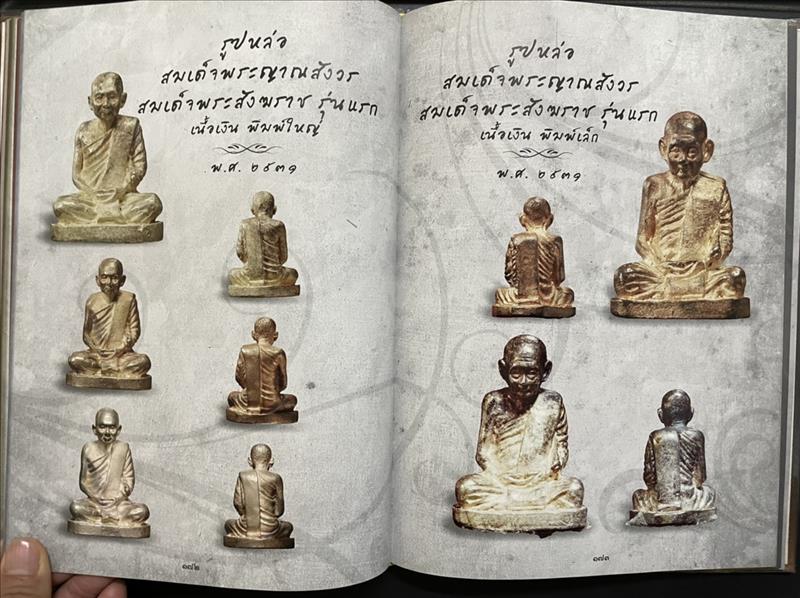 รูปหล่อ
สมเด็จพระญาณสังวร
สมเด็จพระสังฆราช รุ่นแรก
เนื้อเงิน พิมพ์ใหญ่
พ.ศ. ๒๕๓๑
๑๗๒
รูปหล่อ
สมเด็จพระญาณสังวร
สมเด็จพระสังฆราช รุ่นแรก
เนื้อเงิน พิมพ์เล็ก
พ.ศ. ๒๕๓๑
๑๗๓